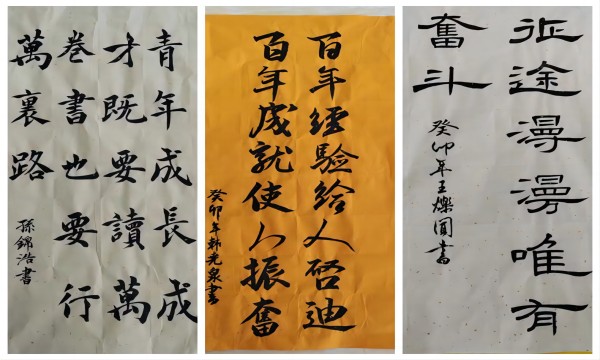 青年成長成
才既要讀萬
卷書也要行
萬裏路
孫錦浩書
百年經驗給人啓迪
百年成就使人振奮
癸卯年韩光泉書
征途漫漫唯有
奮斗
癸卯年王燦圓書